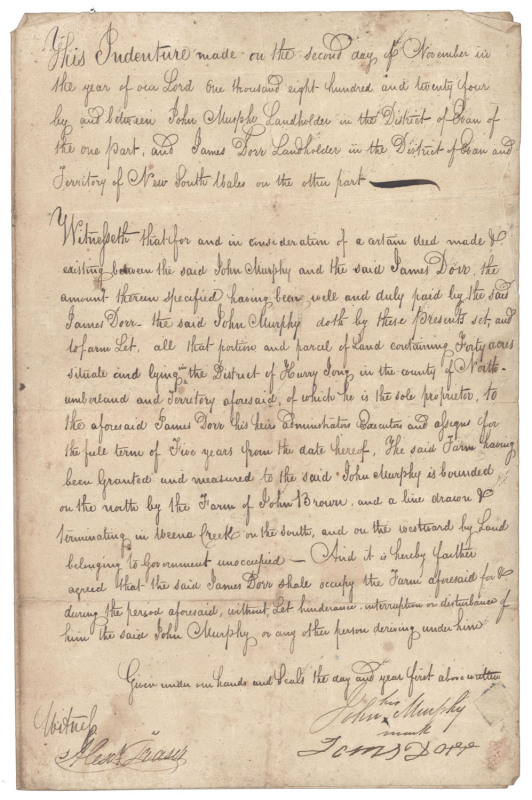 This Indenture made on the second day of November in
the year of our Lord One thousand eight hundred and twenty four
by and between John Murphy Landholder in the District of Evan of
the one part, and James Dorr Landholder in the District of Evan and
Territory of New South Wales on the other part
Witnesseth that for and in consideration of a certain deed made &
existing between the said John Murphy and the said James Dorr, the
amount therein specified having been well and duly paid by the said
James Dorr - the said John Murphy doth by these Presents set, and
to farm Let, all that portion and parcel of Land containing Forty acres
situate and lying in the District of Hurry Jong in the county of North-
umberland and Territory aforesaid, of which he is the sole proprietor, to
the aforesaid James Dorr his heirs administrators Executors and assigns for
the full term of Five years from the date hereof. The said Farm having
been Granted and measured to the said John Murphy is bounded
on the north by the Farm of John Brown, and a line drawn &
terminating in Weena Creek on the south, and on the westward by Land
belonging to Government unoccupied — And it is hereby farther
agreed that the said James Dorr shall occupy the Farm aforesaid for &
during the period aforesaid, without Let hinderance interruption or disturbance of
him the said John Murphy or any other person deriving under him
Given under our hands and Seals the day and year first above written
his
John x Murphy
mark
Witness
Alexr Fraser
Jams Dorr